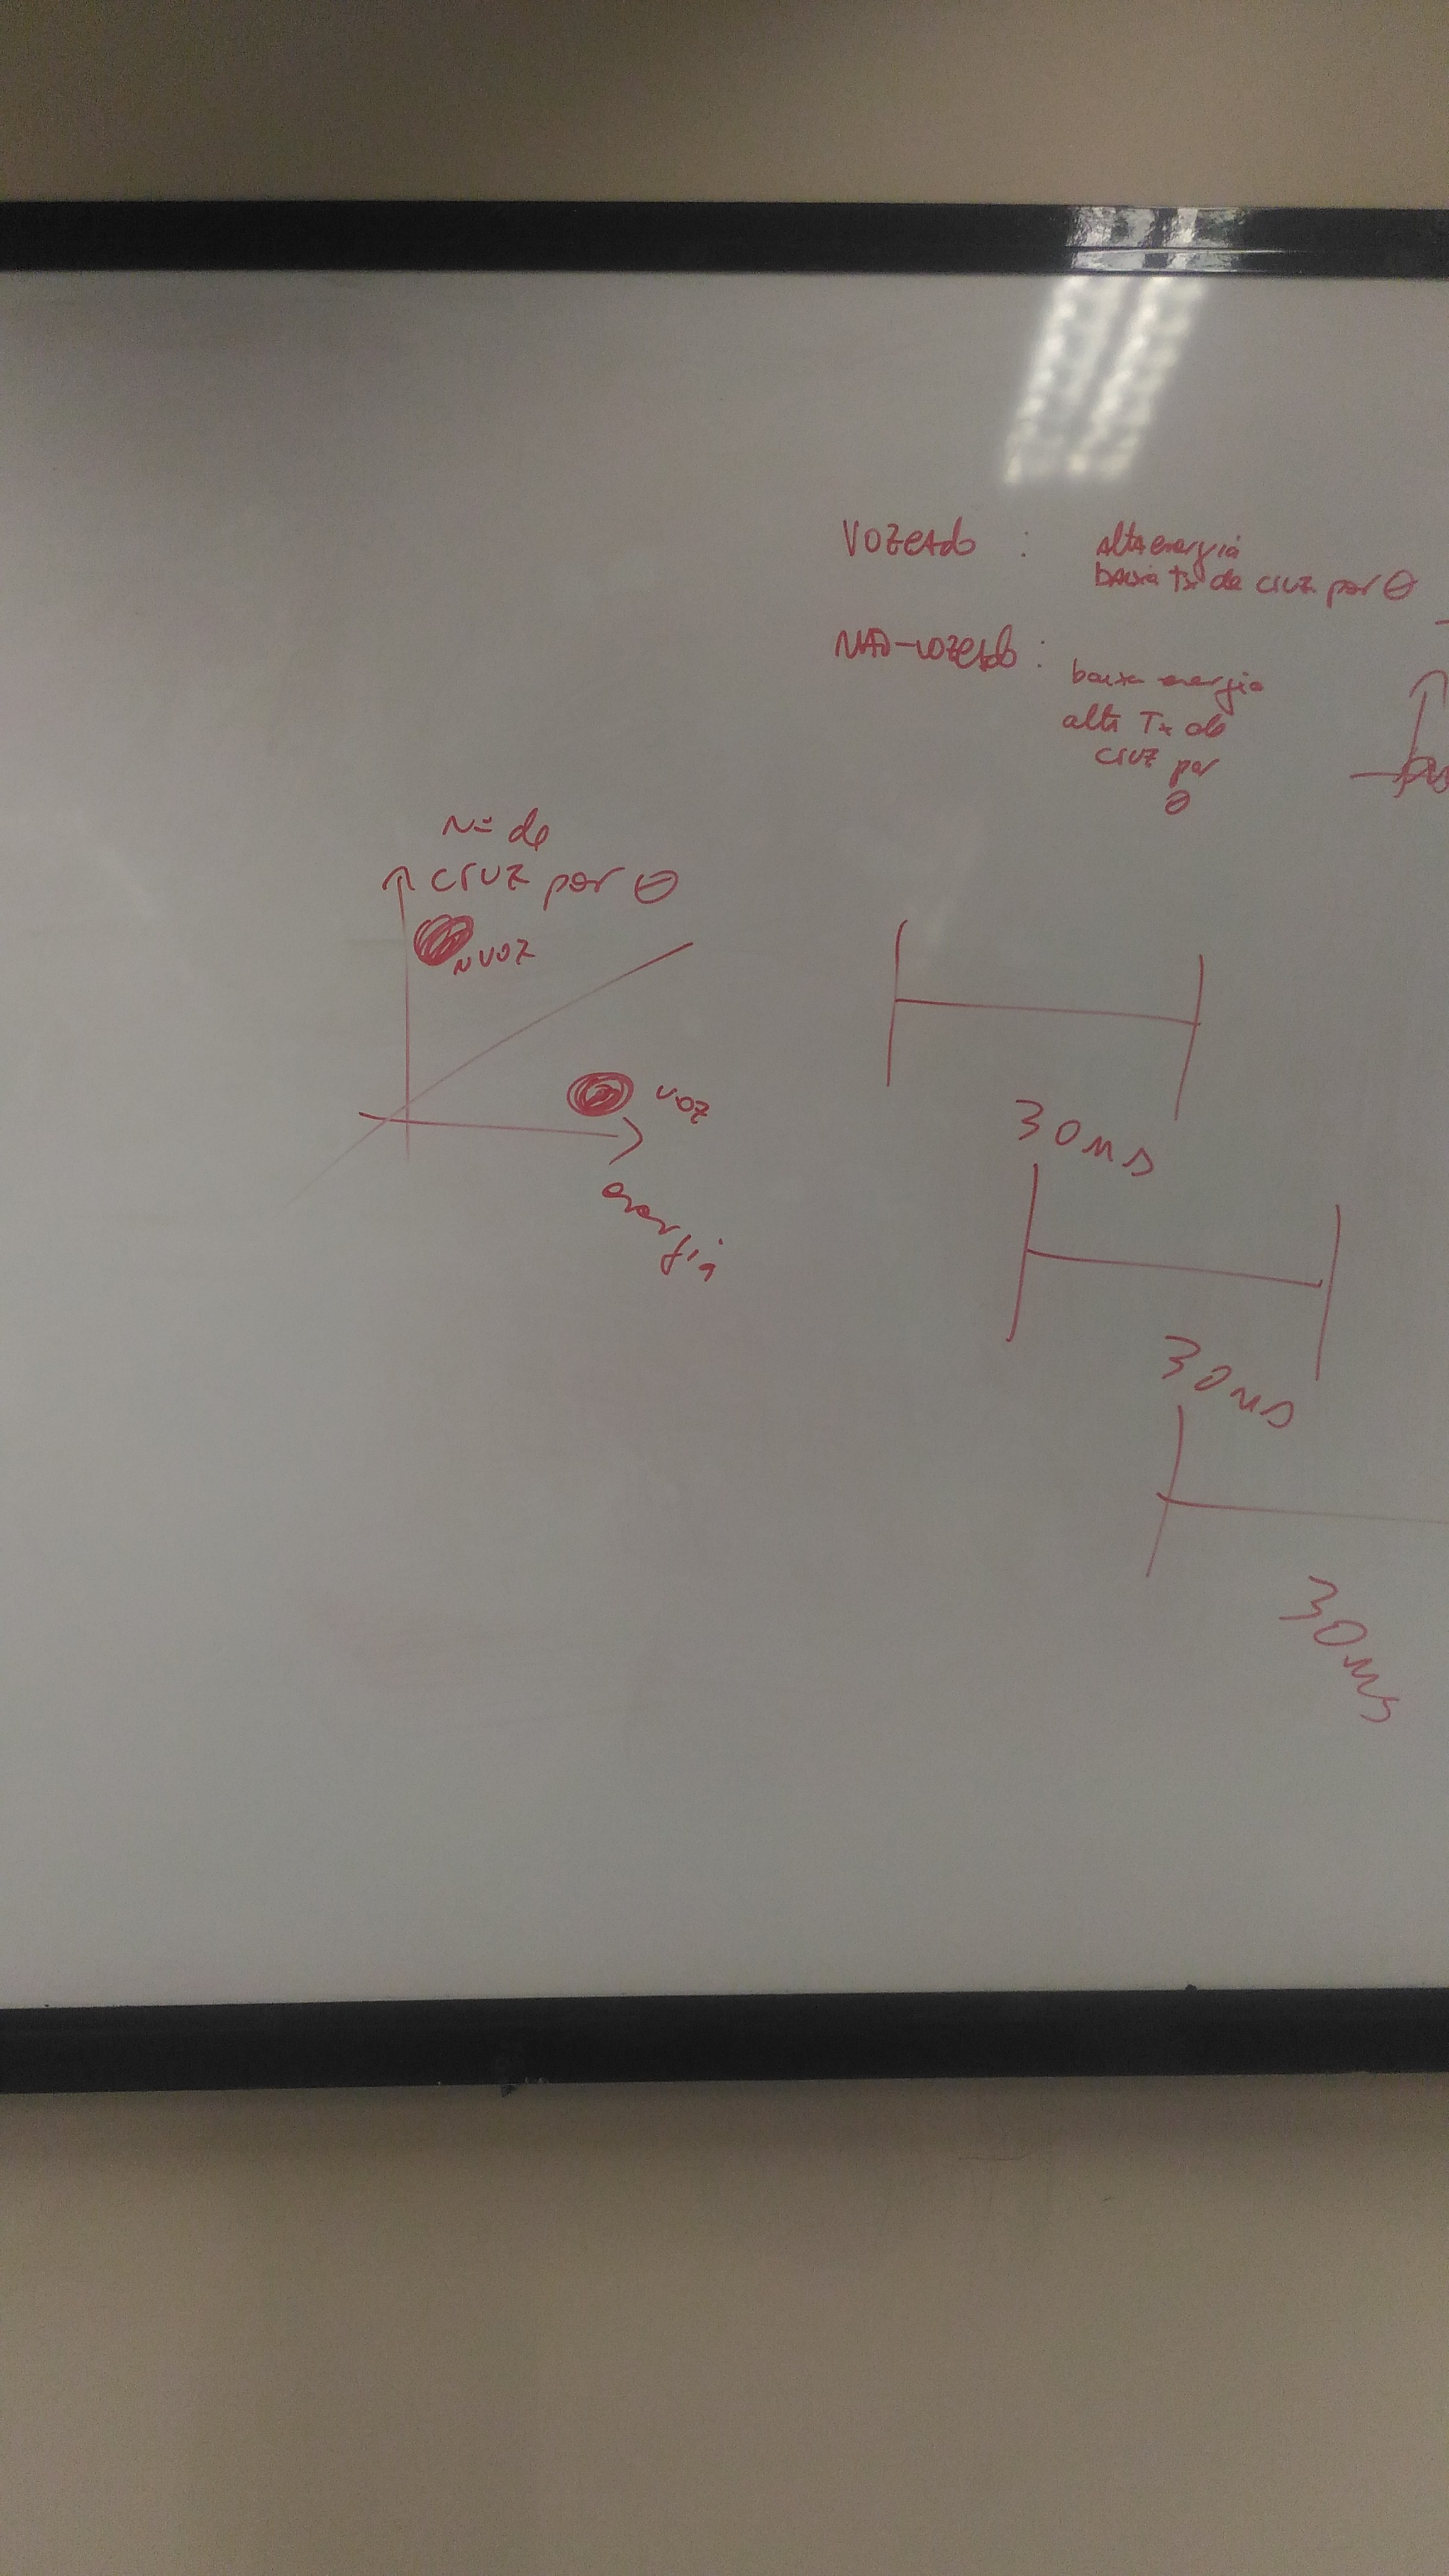 VOZEADO : Alta energia
baixa Tx de cruz. por θ
NÃO-VOZEADO : baixa energia
alta Tx de
cruz por
θ
Nº de
cruz por θ
NVOZ
VOZ
energia
30ms
30ms
30ms